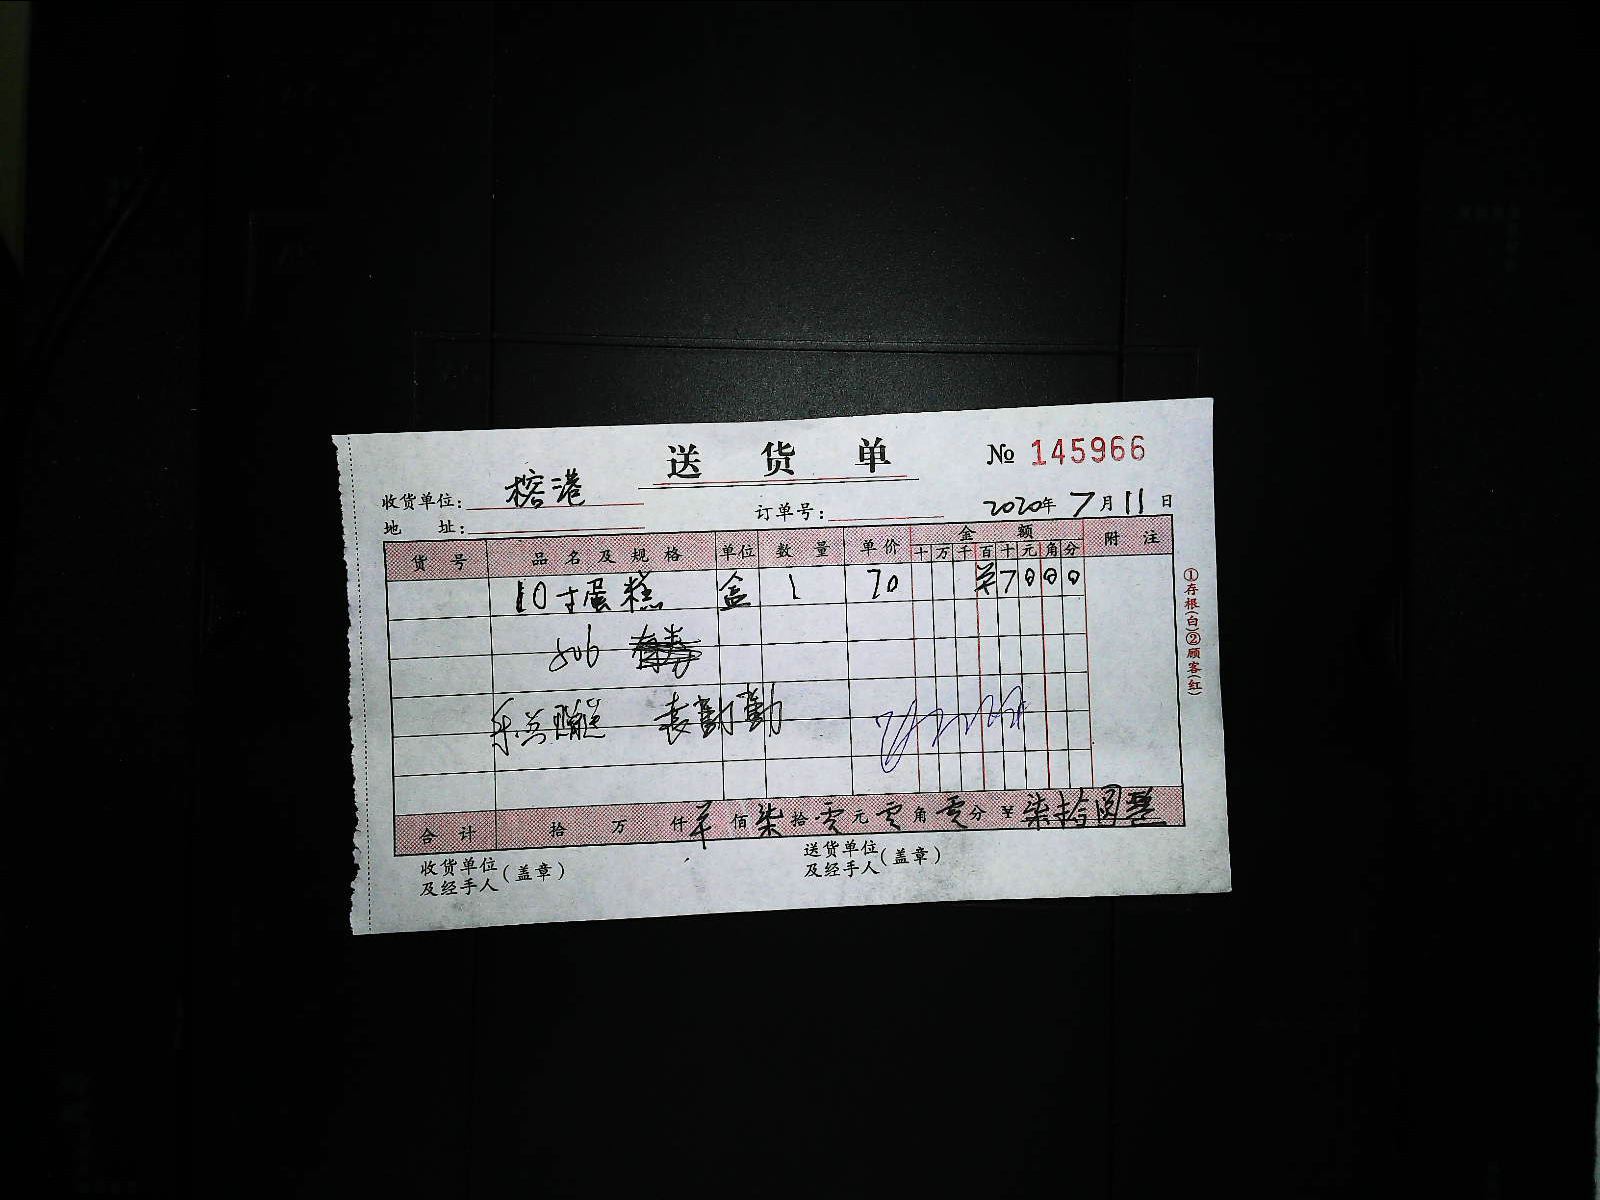 送 货 单 № 145966
收货单位: 榕港
地 址: 订单号: 2020年 7月 11日
货 号 品 名 及 规 格 单位 数 量 单 价 金 额 附 注
十 万 千 百 十 元 角 分
10寸蛋糕 盒 1 70 ¥7000
806
袁勤勤
合 计 拾 万 仟 ¥ 佰 柒 拾 零 元 零 角 零 分 ¥ 柒拾圆整
收货单位 及经手人 (盖章) 送货单位 及经手人 (盖章)
①存根(白)②顾客(红)